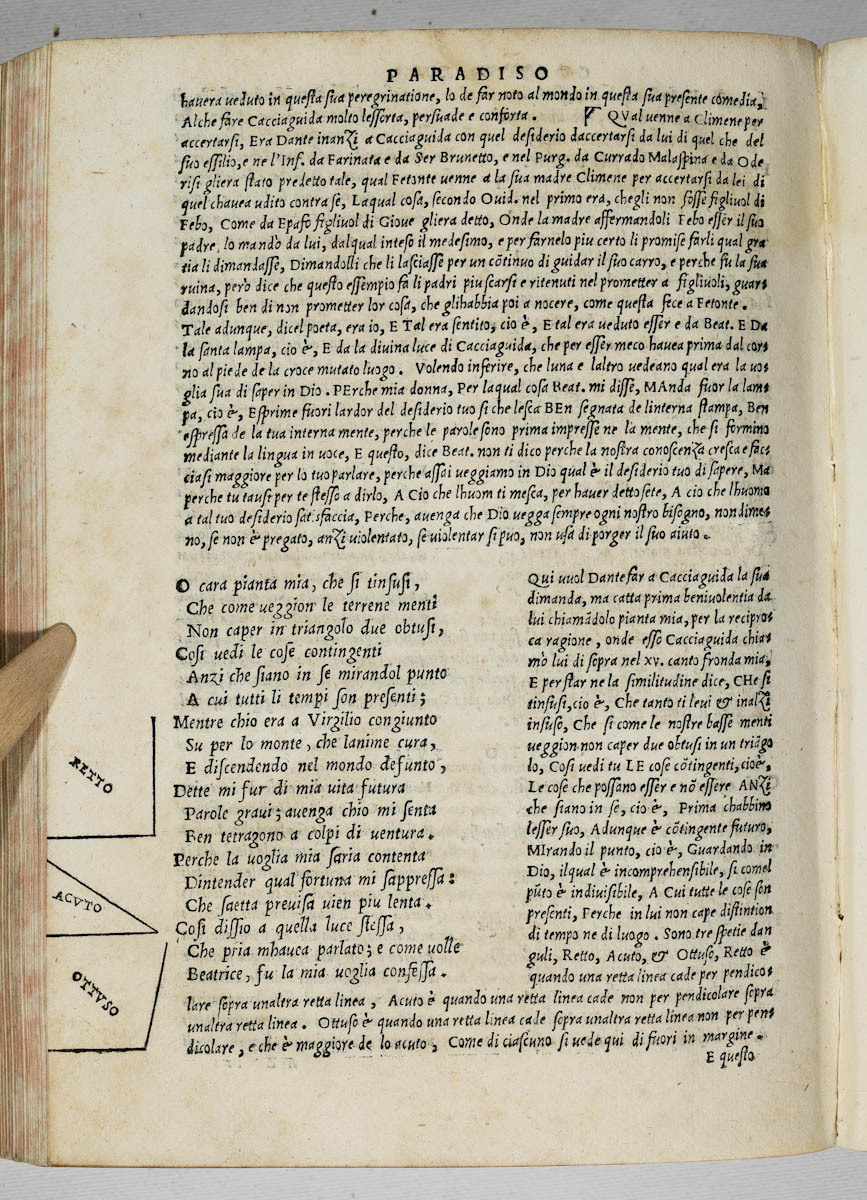 PARADISO
havera veduto in questa sua peregrinatione, lo de far noto al mondo in questa sua presente comedia,
Alche fare Cacciaguida molto lessorta, persuade e conforta. QVal venne a Climene per
accertarsi, Era Dante inanzi a Cacciaguida con quel desiderio daccertarsi da lui di quel che del
suo essilio, e ne l'Inf. da Farinata e da Ser Brunetto, e nel Purg. da Currado Malaspina e da Ode
risi gliera stato predetto tale, qual Fetonte venne a la sua madre Climene per accertarsi da lei di
quel chavea udito contra se, Laqual cosa, secondo Ouid. nel primo era, chegli non fosse figliuol di
Febo, Come da Epafo figliuol di Gioue gliera detto, Onde la madre affermandoli Febo esser il suo
padre, lo mandò da lui, dalqual inteso il medesimo, e per farnelo piu certo li promise farli qual gra
tia li dimandasse, Dimandolli che li lasciasse per un cõtinuo dì guidar il suo carro, e perche fu la sua
ruina, però dice che questo essempio fa li padri piu scarsi e ritenuti nel prometter a figliuoli, guar=
dandosi ben di non prometter lor cosa, che glihabbia poi a nocere, come questa fece a Fetonte.
Tale adunque, dicel poeta, era io, E Tal era sentito, cio è, E tal era ueduto esser e da Beat. E Da
la santa lampa, cio è, E da la diuina luce di Cacciaguida, che per esser meco hauea prima dal cor=
no al piede de la croce mutato luogo. Volendo inferire, che luna e laltro uedeano qual era la uo=
glia sua di saper in Dio. PErche mia donna, Per laqual cosa Beat. mi disse, MAnda fuor la lam=
pa, cio è, Esprime fuori lardor del desiderio tuo si che lesca BEn segnata de linterna stampa, Ben
espressa de la tua interna mente, perche le parole sono prima impresse ne la mente, che si formino
mediante la lingua in uoce, E questo, dice Beat. non ti dico perche la nostra conoscenza cresca e fac=
ciasi maggiore per lo tuo parlare, perche assai ueggiamo in Dio qual è il desiderio tuo di sapere, Ma
perche tu tausi per te stesso a dirlo, A Cio che lhuom ti mesca, per hauer detto sete, A cio che lhuomo
a tal tuo desiderio satisfaccia, Perche, auenga che Dio uegga sempre ogni nostro bisogno, nondime=
no, se non è pregato, anzi uiolentato, se uiolentar si puo, non usa di porger il suo aiuto.
O cara pianta mia, che si tinsusi,
Che come ueggion le terrene menti
Non caper in triangolo due obtusi,
Cosi uedi le cose contingenti
Anzi che siano in se mirandol punto
A cui tutti li tempi son presenti;
Mentre chio era a Virgilio congiunto
Su per lo monte, che lanime cura,
E discendendo nel mondo defunto,
Dette mi fur di mia uita futura
Parole graui; auenga chio mi senta
Ben tetragono a colpi di uentura.
Perche la uoglia mia saria contenta
Dintender qual fortuna mi sappressa:
Che saetta preuisa uien piu lenta.
Cosi dissio a quella luce stessa,
Che pria mhauea parlato; e come uolle
Beatrice, fu la mia uoglia confessa.
Qui uuol Dante far a Cacciaguida la sua
dimanda, ma catta prima beniuolentia da
lui chiamãdolo pianta mia, per la recipro=
ca ragione, onde esso Cacciaguida chia=
mò lui di sopra nel xv. canto fronda mia,
E per star ne la similitudine dice, CHe si
tinsusi, cio è, Che tanto ti leui & inalzi
insuso, Che si come le nostre basse menti
ueggion non caper due obtusi in un triãgo
lo, Cosi uedi tu LE cose cõtingenti, cio è,
Le cose che possano esser e nõ essere ANzi
che siano in se, cio è, Prima chabbino
lesser suo, Adunque è cõtingente futuro,
MIrando il punto, cio è, Guardando in
Dio, ilqual è incomprehensibile, si comel
pũto è indiuisibile, A Cui tutte le cose son
presenti, Perche in lui non cape distintion
di tempo ne di luogo. Sono tre spetie dan
guli, Retto, Acuto, & Ottuso, Retto è
quando una retta linea cade per pendico=
lare sopra unaltra retta linea, Acuto è quando una retta linea cade non per pendicolare sopra
unaltra retta linea. Ottuso è quando una retta linea cade sopra unaltra retta linea non per pen=
dicolare, e che è maggiore de lo acuto, Come di ciascuno si uede qui di fuori in margine.
E questo
RETTO
ACVTO
OTTVSO